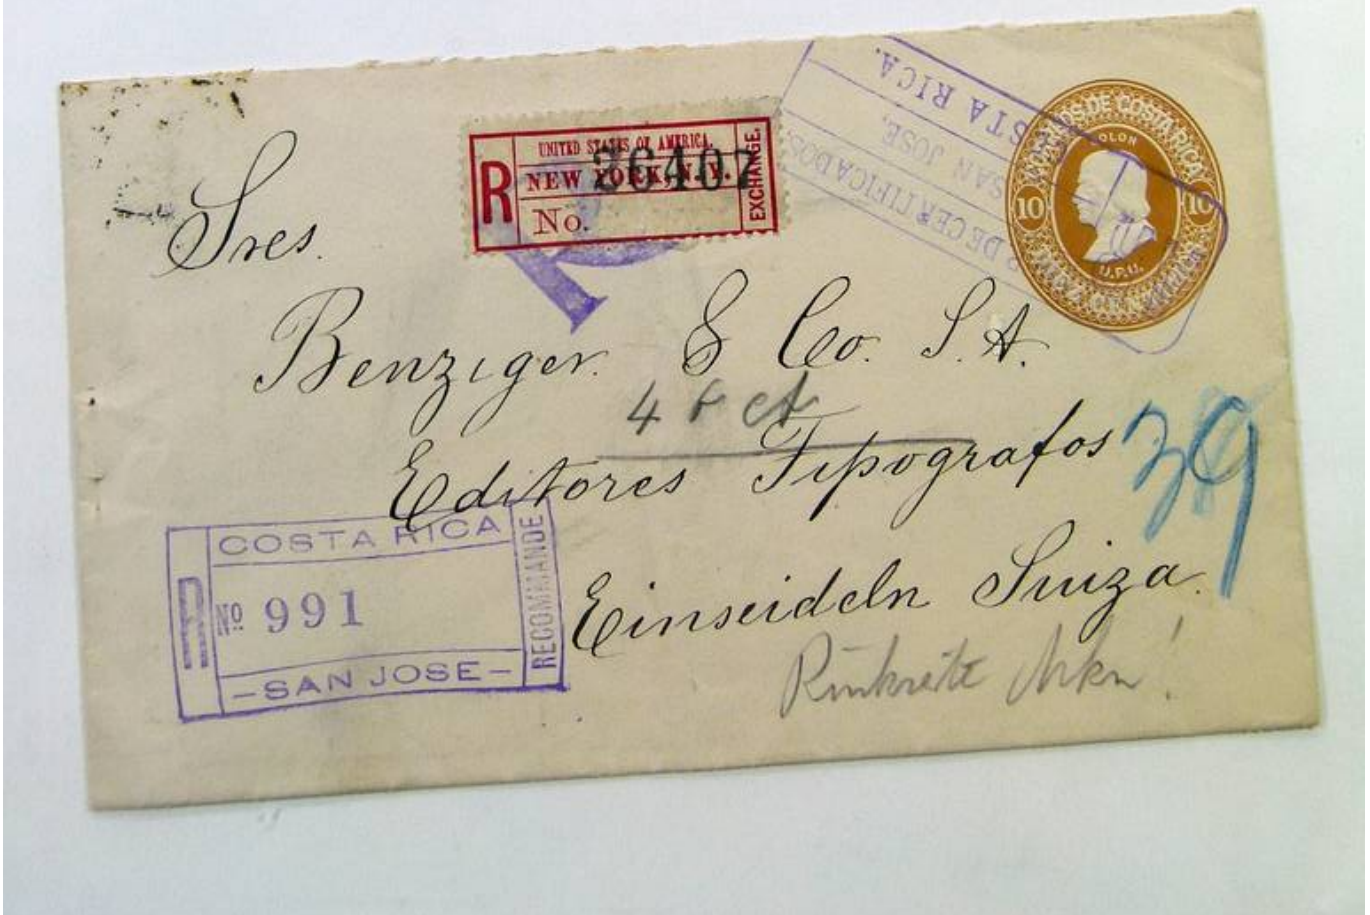 UNITED STATES OF AMERICA.
R NEW YORK, N.Y. EXCHANGE.
No. 36407
DE CERTIFICADOS,
SAN JOSE,
COSTA RICA.
CORREOS DE COSTA RICA
COLON
10 10
U.P.U.
Sres.
Benziger & Co. S. A.
4 Oct
Editores Tipografos
39
Einseideln Suiza.
COSTA RICA
R No 991 RECOMMANDE
-SAN JOSE-